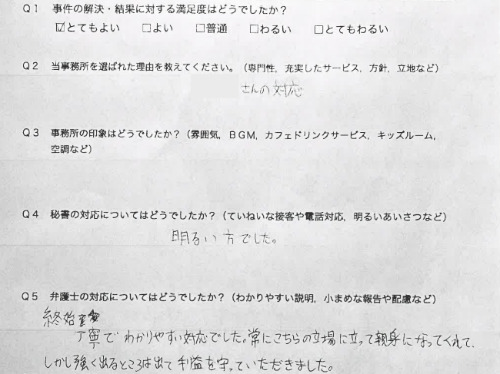 Q1 事件の解決・結果に対する満足度はどうでしたか?
☑とてもよい □よい □普通 □わるい □とてもわるい
Q2 当事務所を選ばれた理由を教えてください。(専門性,充実したサービス,方針,立地など)
さんの対応
Q3 事務所の印象はどうでしたか?(雰囲気,BGM,カフェドリンクサービス,キッズルーム,
空調など)
Q4 秘書の対応についてはどうでしたか?(ていねいな接客や電話対応,明るいあいさつなど)
明るい方でした。
Q5 弁護士の対応についてはどうでしたか?(わかりやすい説明,小まめな報告や配慮など)
終始
丁寧でわかりやすい対応でした。常にこちらの立場に立って親身になってくれて、
しかし強く出るところは出て利益を守っていただきました。